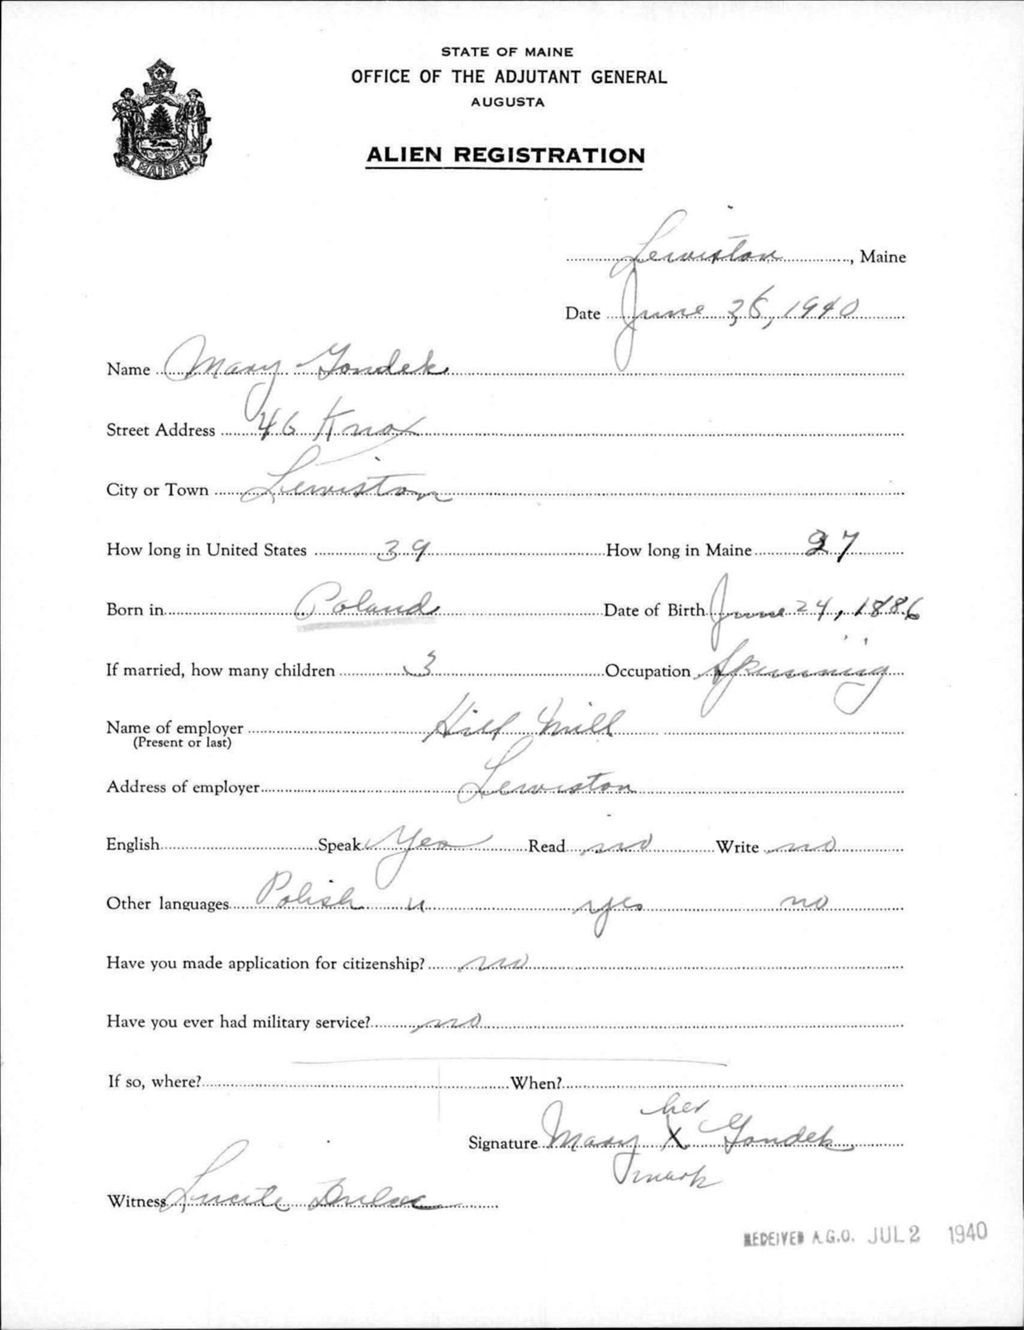 STATE OF MAINE
OFFICE OF THE ADJUTANT GENERAL
AUGUSTA
ALIEN REGISTRATION
MAINE
Lewiston, Maine
Date June 26, 1940
Name Mary Gondek
Street Address 46 Knox
City or Town Lewiston
How long in United States 39 How long in Maine 27
Born in Poland Date of Birth June 24, 1886
If married, how many children 3 Occupation Spinning
Name of employer Hill Mill
(Present or last)
Address of employer Lewiston
English Speak Yes Read no Write no
Other languages Polish " yes no
Have you made application for citizenship? no
Have you ever had military service? no
If so, where? When?
her
Signature Mary X Gondek
mark
Witness Lucile
RECEIVED A.G.O. JUL 2 1940